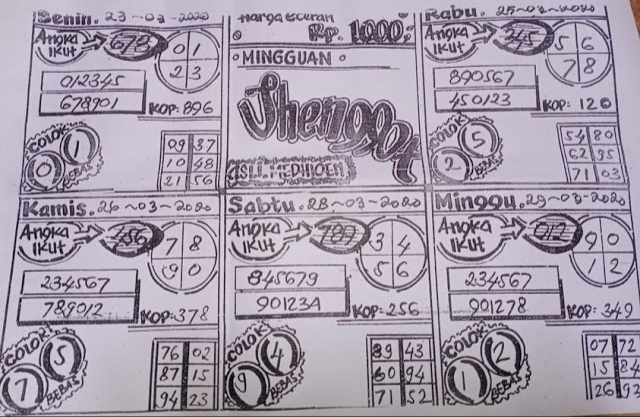 Senin. 23-03-2020
ANGKA IKUT
678
0 1
2 3
012345
678901
KOP: 896
COLOK BEBAS
0 1
09 37
10 48
21 56
Harga Eceran
Rp. 1000;-
MINGGUAN
Shenggot
ASLI. MEDHIOEN
Rabu. 25-03-2020
ANGKA IKUT
345
5 6
7 8
890567
450123
KOP: 120
COLOK BEBAS
2 5
54 80
62 95
71 03
Kamis. 26-03-2020
ANGKA IKUT
456
7 8
9 0
234567
789012
KOP: 378
COLOK BEBAS
7 5
76 02
87 15
94 23
Sabtu. 28-03-2020
ANGKA IKUT
789
3 4
5 6
845679
901234
KOP: 256
COLOK BEBAS
9 4
39 43
60 94
71 52
Minggu. 29-03-2020
ANGKA IKUT
012
9 0
1 2
234567
901278
KOP: 349
COLOK BEBAS
1 2
07 72
15 84
26 93